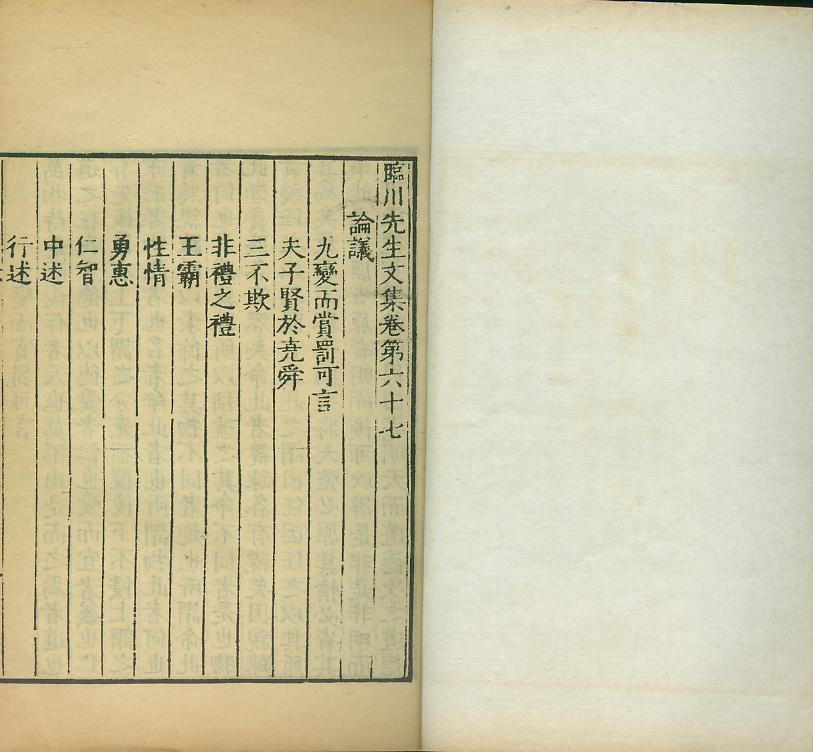 臨川先生文集卷第六十七
論議
九變而賞罰可言
夫子賢於堯舜
三不欺
非禮之禮
王霸
性情
勇惠
仁智
中述
行述